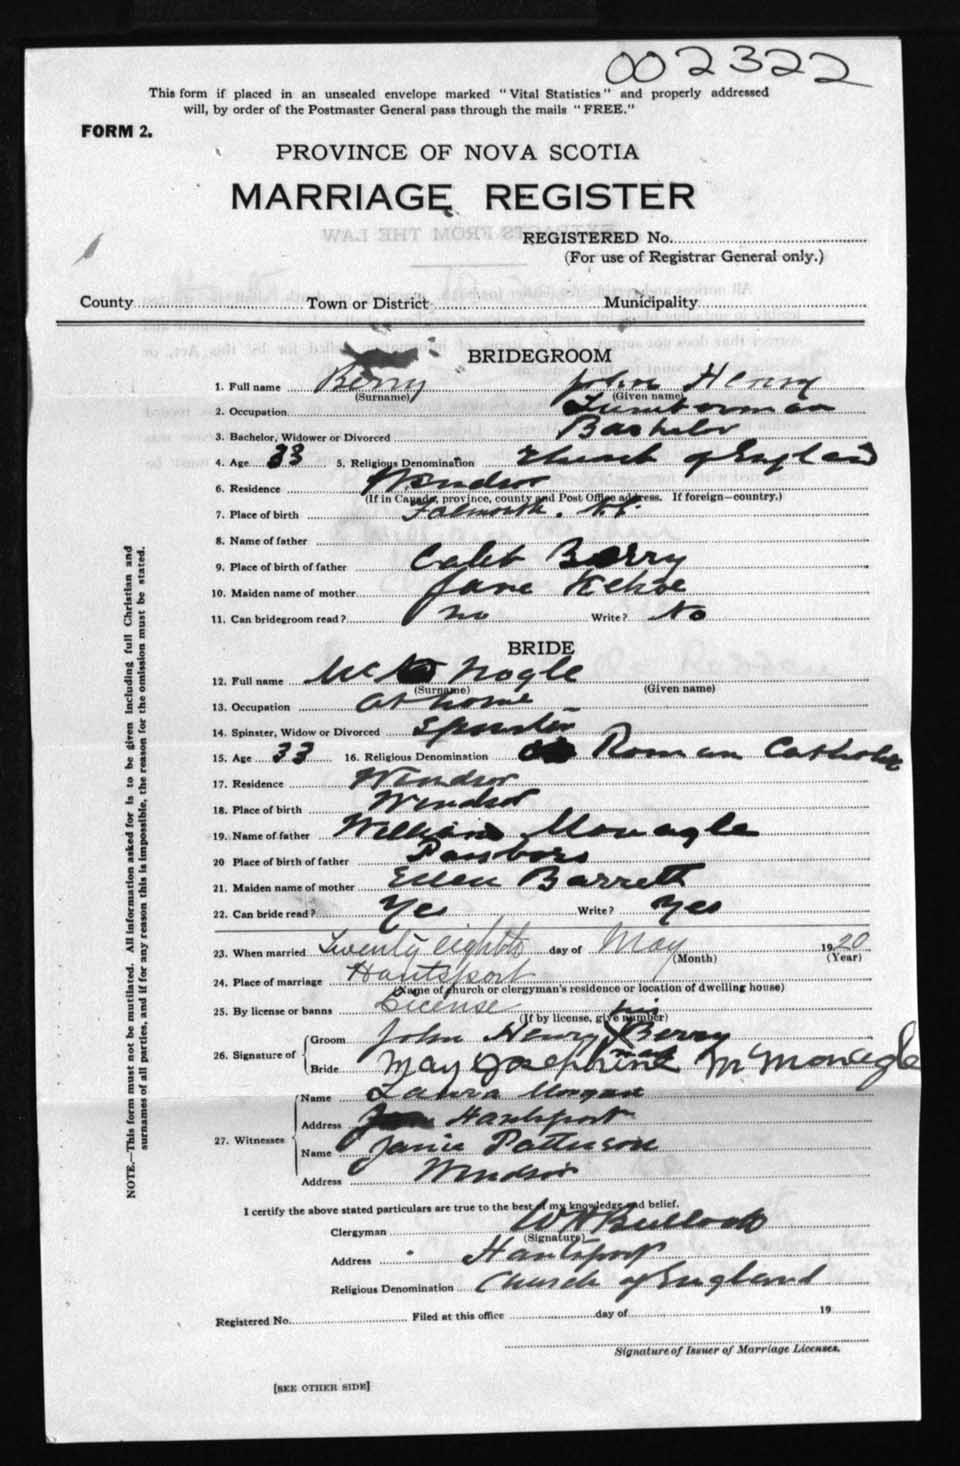 002322
This form if placed in an unsealed envelope marked "Vital Statistics" and properly addressed
will, by order of the Postmaster General pass through the mails "FREE."
FORM 2.
PROVINCE OF NOVA SCOTIA
MARRIAGE REGISTER
REGISTERED No.
(For use of Registrar General only.)
County Town or District Municipality
BRIDEGROOM
1. Full name Berry John Henry
(Surname) (Given name)
2. Occupation Lumberman
3. Bachelor, Widower or Divorced Bachelor
4. Age 33 5. Religious Denomination Church of England
6. Residence Windsor
(If in Canada, province, county and Post Office address. If foreign—country.)
7. Place of birth Falmouth. N.S.
8. Name of father
9. Place of birth of father Caleb Berry
10. Maiden name of mother Jane Kehoe
11. Can bridegroom read? No Write? No
BRIDE
12. Full name Nogle
(Surname) (Given name)
13. Occupation at home
14. Spinster, Widow or Divorced Spinster
15. Age 33 16. Religious Denomination Roman Catholic
17. Residence Windsor
18. Place of birth Windsor
19. Name of father William Monagle
20 Place of birth of father Parsboro
21. Maiden name of mother Ellen Barrett
22. Can bride read? Yes Write? Yes
23. When married Twenty eighth day of May 1920
(Month) (Year)
24. Place of marriage Hantsport
(Name of church or clergyman's residence or location of dwelling house)
25. By license or banns License
(If by license, give number)
26. Signature of
his
Groom John Henry X Berry
mark
Bride May Josephine McMonagle
27. Witnesses
Name Laura Morgan
Address Hantsport
Name Janie Patterson
Address Windsor
I certify the above stated particulars are true to the best of my knowledge and belief.
Clergyman W H Bullock
(Signature)
Address Hantsport
Religious Denomination Church of England
Registered No. Filed at this office day of 19
Signature of Issuer of Marriage Licenses.
[SEE OTHER SIDE]
NOTE.—This form must not be mutilated. All information asked for is to be given including full Christian and
surnames of all parties, and if for any reason this is impossible, the reason for the omission must be stated.